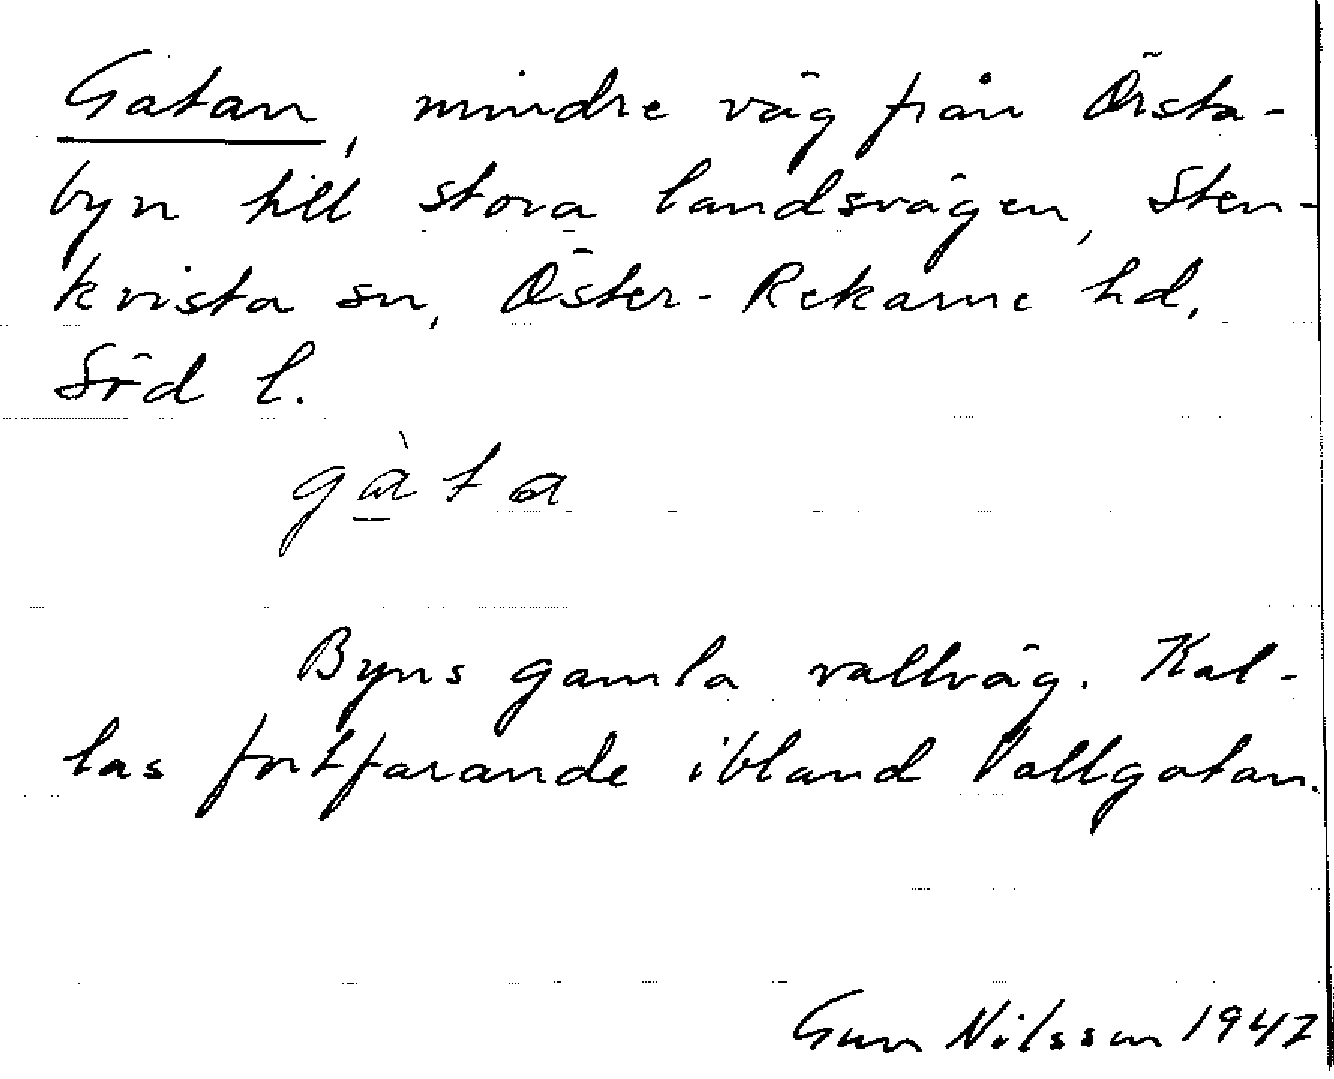 Gatan, mindre väg från Örsta-
byn till stora landsvägen, Sten-
kvista sn, Öster-Rekarne hd,
Söd l.
gàta
Byns gamla vallväg. Kal-
las fortfarande ibland Vallgatan.
Gun Nilsson 1947